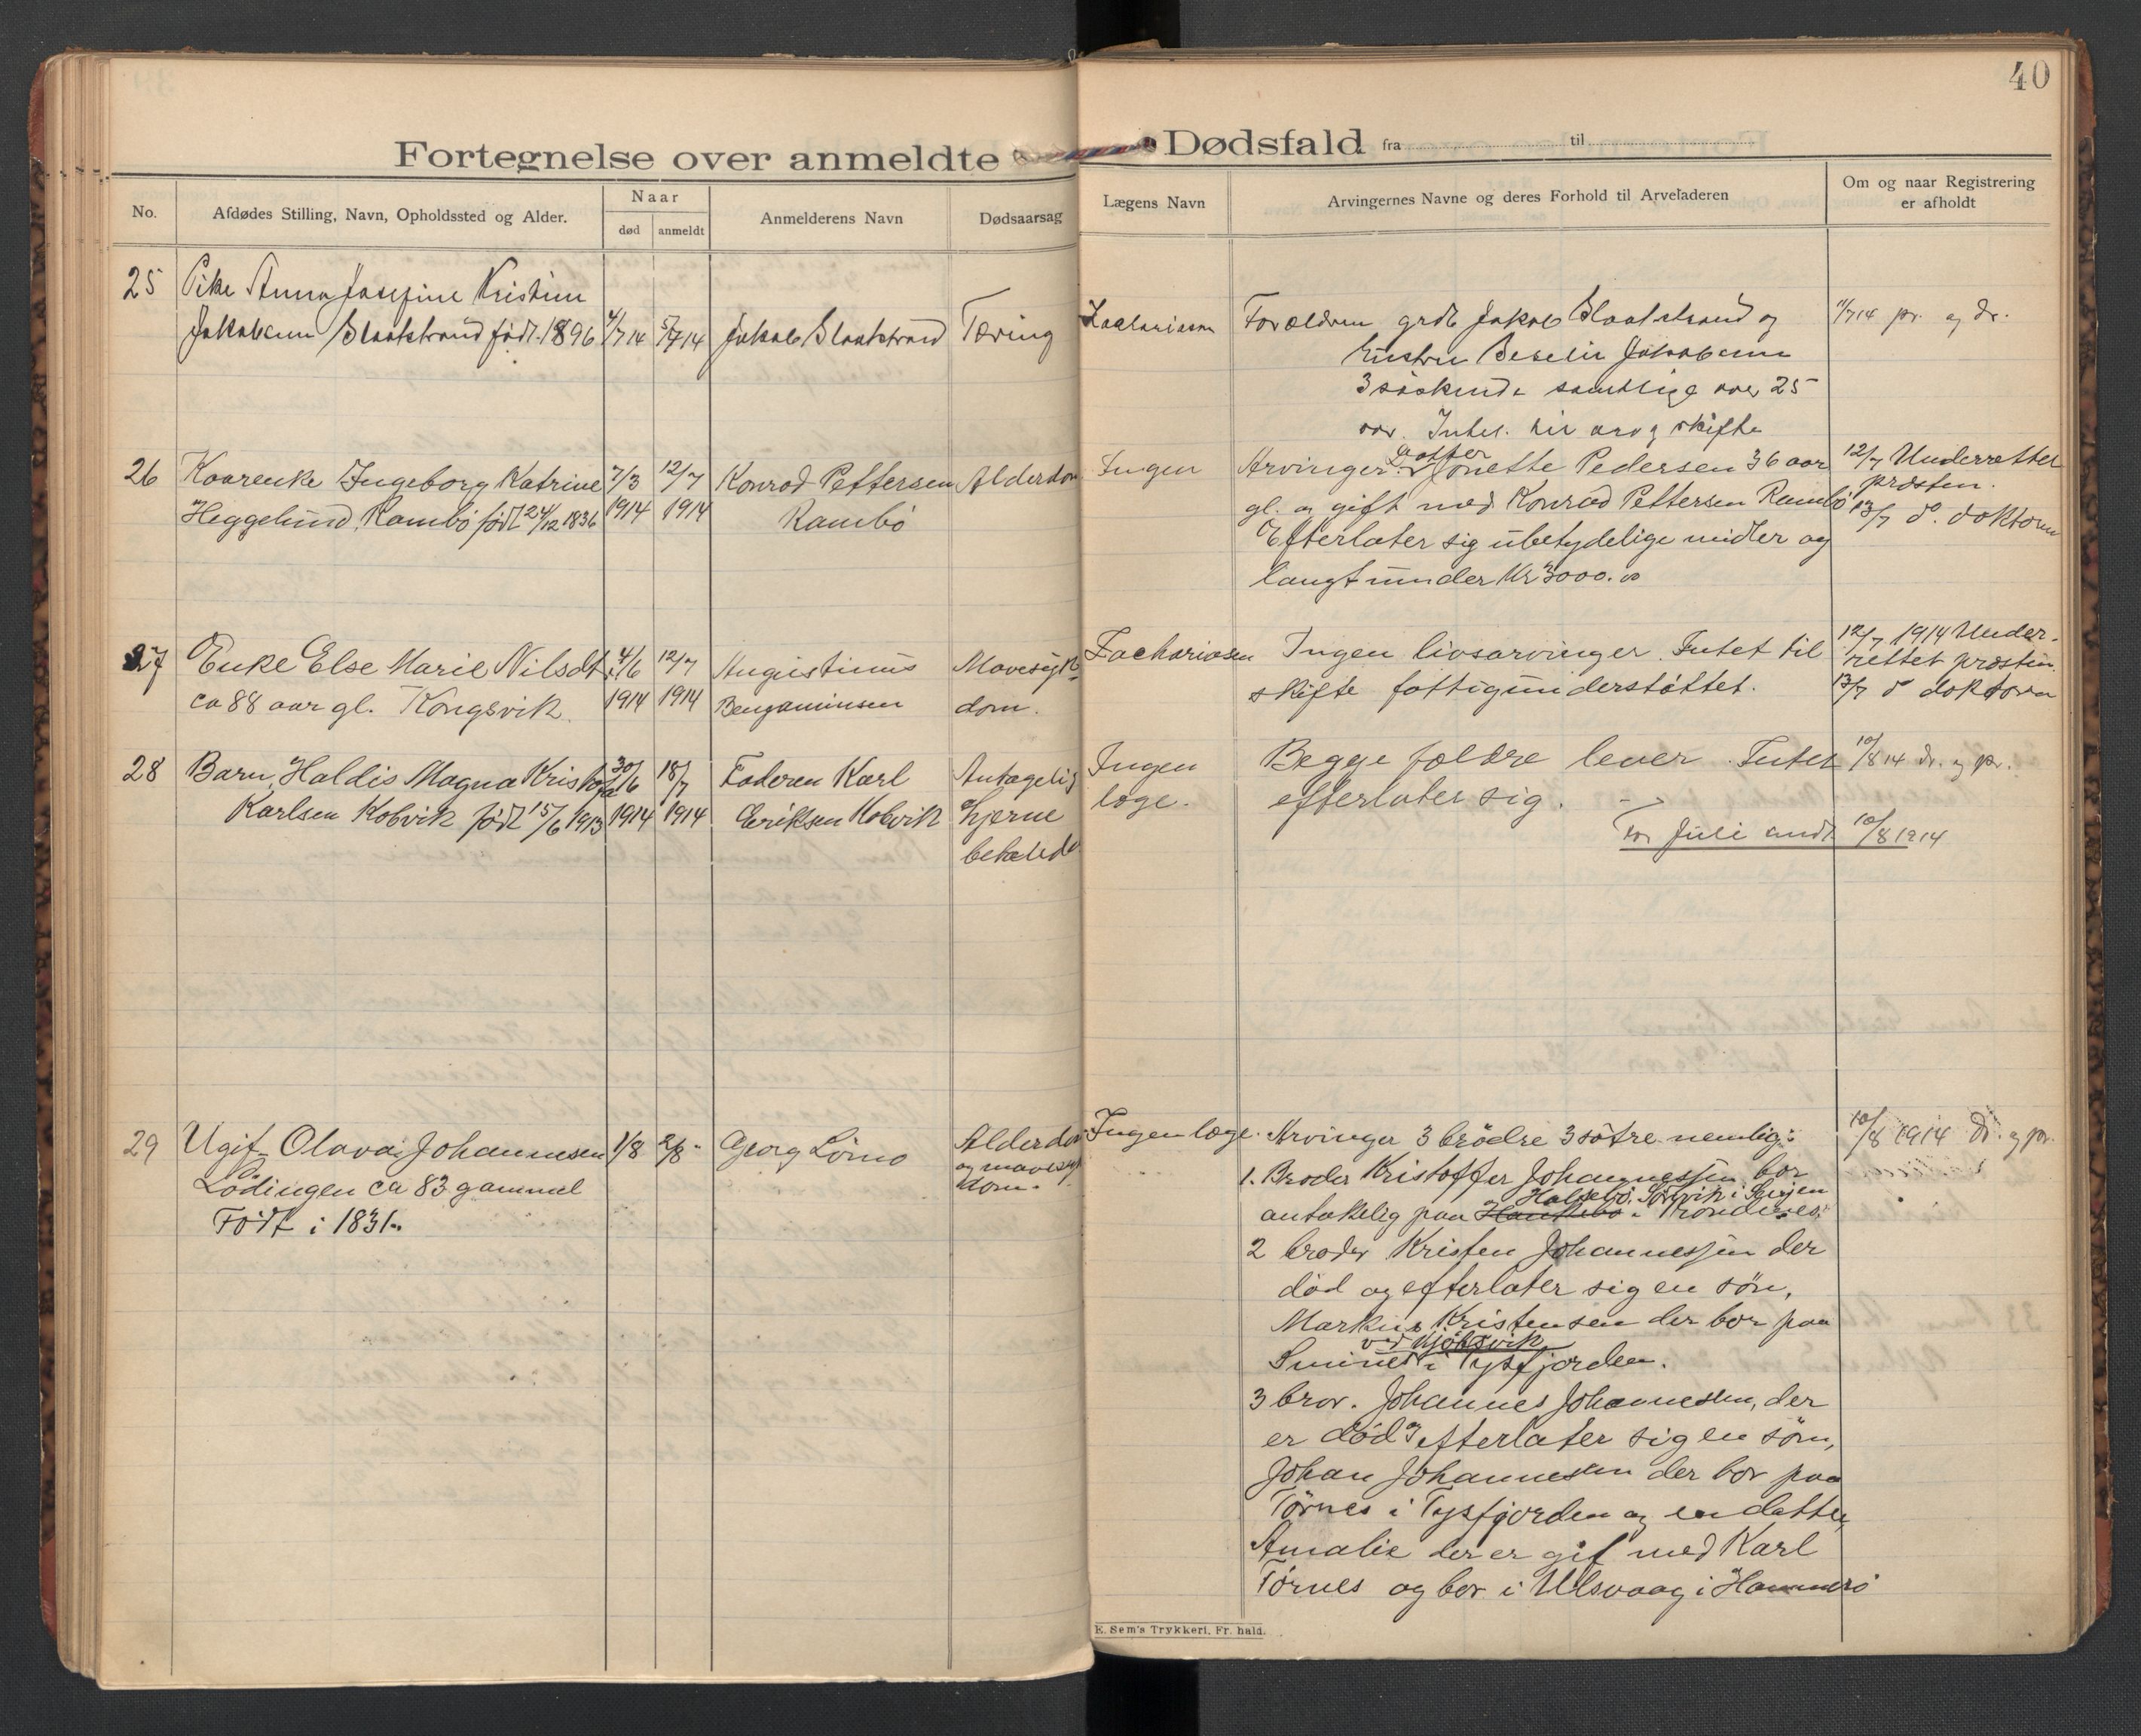 40
Fortegnelse over anmeldte Dødsfald fra til
No.
Afdødes Stilling, Navn, Opholdssted og Alder.
Naar
død
anmeldt
Anmelderens Navn
Dødsaarsag
Lægens Navn
Arvingernes Navne og deres Forhold til Arveladeren
Om og naar Registrering
er afholdt
25 Pike Anna Josefine Kristine
Jakobsen Slaatstrand født. 1896
4/7 14
5/7 14
Jakob Slaatstrand
Tæring
Zachariassen
Forældren grdb Jakob Slaatstrand og
hustru Jakobsen
3 søskende samtlige over 25
aar. Intet til arv og skifte
11/7 14 pr. og dr.
26 Kaarenke Ingeborg Katrine
Heggelund, Rambö född 24/12 1836
7/3
1914
12/7
1914
Konrad Pettersen
Rambö
Alderdom
Ingen
Arvinger: Datter Jonette Pedersen 36 aar
gl. og gift med Konrad Pettersen Rambö
Efterlater sig ubetydelige midler og
langt under Kr 3000.00
12/7 Underrettet
præsten.
13/7 do. doktoren
27 Enke Else Marie Nilsdt.
ca 88 aar gl. Kongsvik.
4/6
1914
12/7
1914
Augustinus
Benjaminsen
Mavesyk-
dom.
Zachariasen
Ingen livsarvinger. Intet til
skifte fattigunderstøttet.
12/7 1914 Under-
rettet præsten.
13/7 do doktoren
28 Barn, Haldis Magna Kristofa
Karlsen Kobvik född 15/6 1913
30/6
1914
18/7
1914
Faderen Karl
Eriksen Kobvik
Antagelig
hjerne
betændelse
Ingen
læge.
Begge foældre lever. Intet
efterlater sig.
10/8 14 dr. og pr.
For Juli sendt 10/8 1914
29 Ugif. Olava Johannesen
Lödingen ca 83 gammel
Född i 1831.
1/8
2/8
Georg Lömo
Alderdom
og mavesyk
dom.
Ingen læge.
Arvinger 3 brødre 3 søtre nemlig:
1. Broder Kristoffer Johannessen bor
Halsebö, Sörvik i Senjen
antakelig paa i Trondenes:
2 broder Kristen Johannessen der
död og efterlater sig en sön,
Markus Kristensen der bor paa
ved Kjöbsvik
i Tysfjorden.
3 bror. Johannes Johannessen, der
er död efterlater sig en sön,
Johan Johannessen der bor paa
Törnes i Tysfjorden og en datter,
Amalie der er gif med Karl
Törnes og bor i Ulsvaag i Hammerö
10/8 1914 dr. og pr.
E. Sem's Trykkeri, Fr. hald.